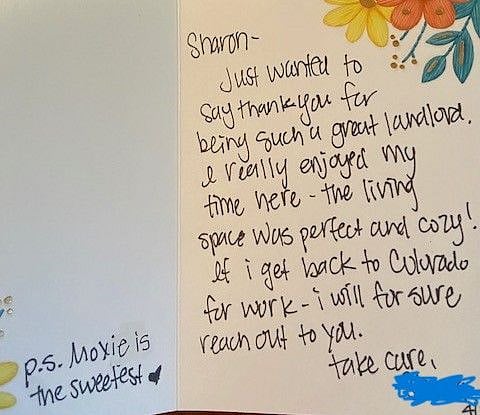 Sharon-
Just wanted to
say thank you for
being such a great landlord.
I really enjoyed my
time here - the living
space was perfect and cozy!
If i get back to Colorado
for work - i will for sure
reach out to you.
take care,
p.s. Moxie is
the sweetest ♥